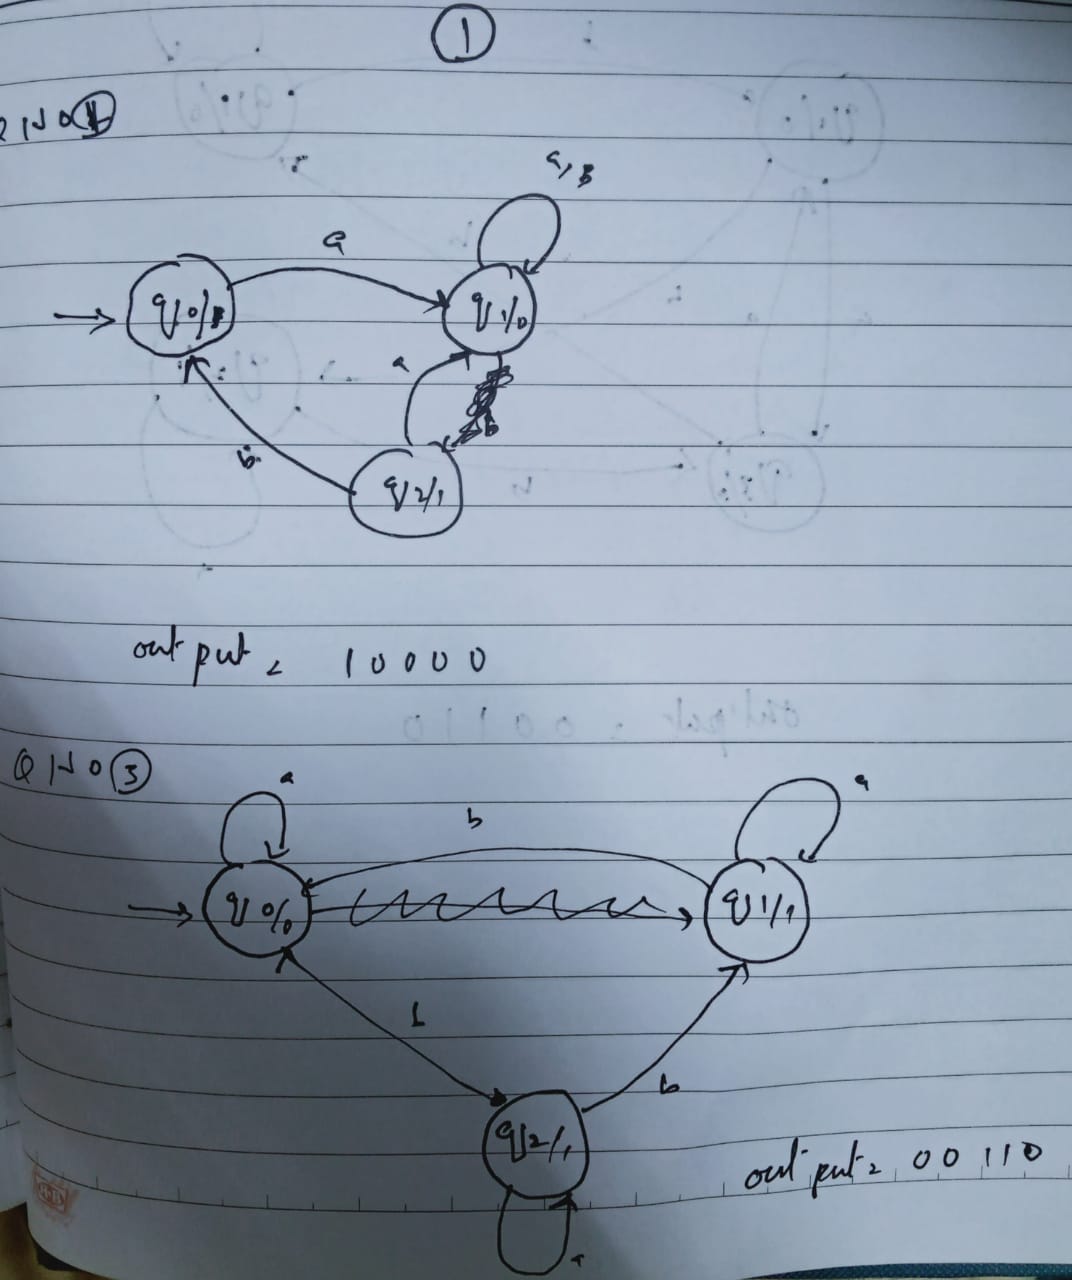 1
a, b
a
q0/1
q1/0
a
b
b
q2/1
output = 10000
QNO 3
a
a
b
q0/0
q1/1
b
b
q2/1
output = 00110
a